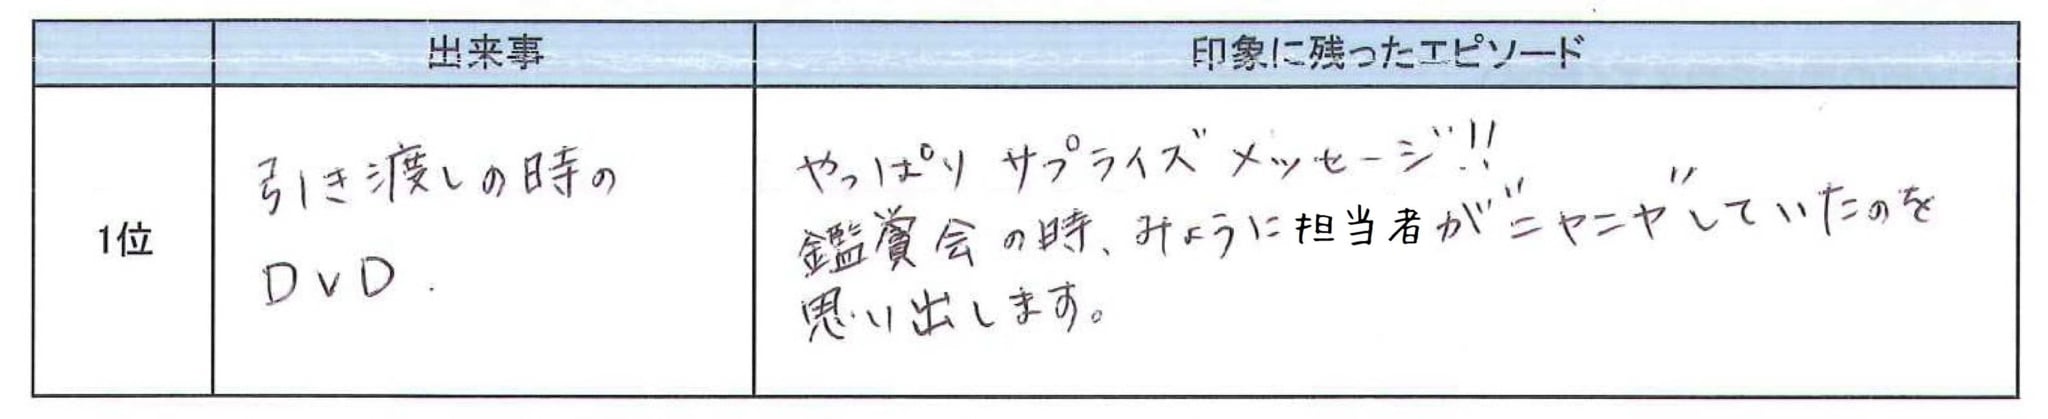 出来事 印象に残ったエピソード
1位
引き渡しの時の
DVD.
やっぱり サプライズメッセージ!!
鑑賞会の時、みょうに担当者が"ニヤニヤ"していたのを
思い出します。